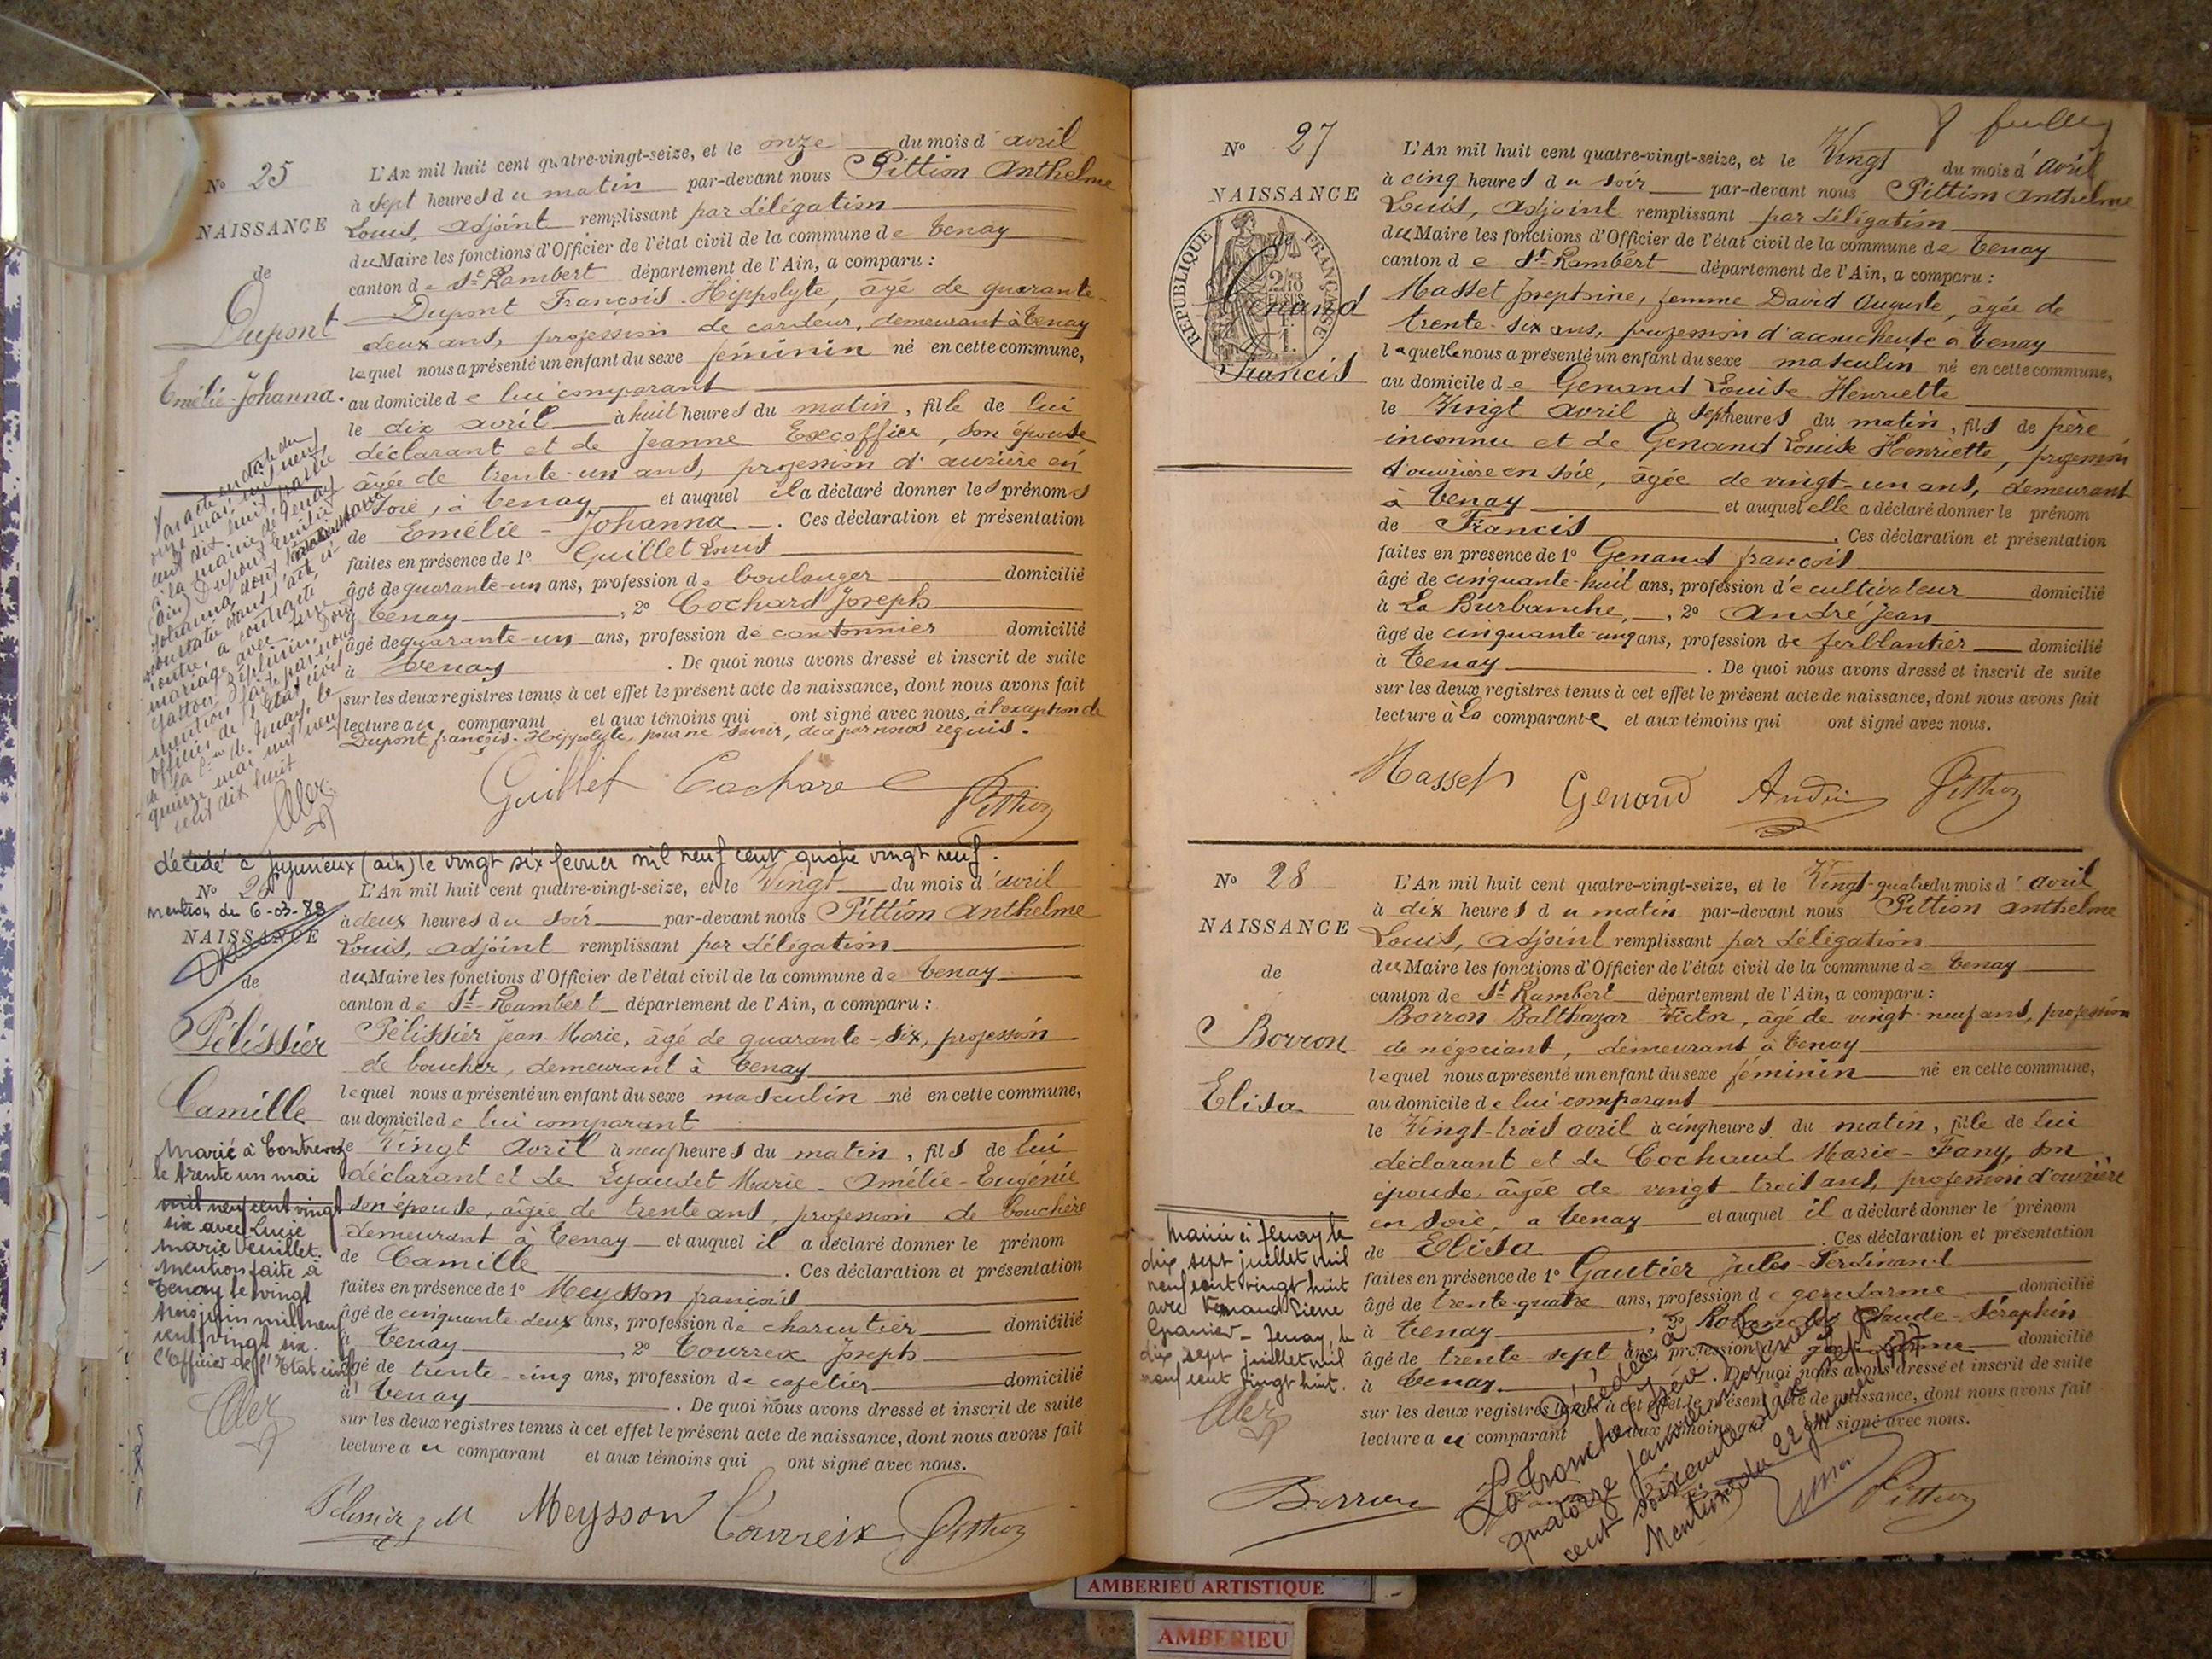 N° 25
NAISSANCE
de
Dupont
Emélie-Johanna.
L'An mil huit cent quatre-vingt-seize, et le onze du mois d'avril
à sept heures du matin par-devant nous Pittion Anthelme
Louis, adjoint remplissant par délégation
du Maire les fonctions d'Officier de l'état civil de la commune de Tenay
canton de St-Rambert département de l'Ain, a comparu :
Dupont François-Hippolyte, âgé de quarante-
deux ans, profession de cardeur, demeurant à Tenay
lequel nous a présenté un enfant du sexe féminin né en cette commune,
au domicile de lui comparant
le dix avril à huit heures du matin, fille de lui
déclarant et de Jeanne Escoffier, son épouse
âgée de trente-un ans, profession d'ouvrière en
soie, à Tenay et auquel il a déclaré donner les prénoms
de Emélie-Johanna. Ces déclaration et présentation
faites en présence de 1° Guillet Louis
âgé de quarante-un ans, profession de boulanger domicilié
à Tenay, 2° Cochard Joseph
âgé de quarante-un ans, profession de cantonnier domicilié
à Tenay. De quoi nous avons dressé et inscrit de suite
sur les deux registres tenus à cet effet le présent acte de naissance, dont nous avons fait
lecture au comparant et aux témoins qui ont signé avec nous, à l'exception de
Dupont françois-Hippolyte, pour ne savoir, de ce par nous requis.
onze mai mil neuf
cent dix huit
à la mairie de Tenay
(Ain) Dupont Emélie
Johanna dont la naissance
est constatée dans l'acte ci-
contre, a contracté
mariage avec
mention faite par nous
officier de l'état civil
de la Cne de Tenay, le
quinze mai mil neuf
cent dix huit
Guillet Cochard Pittion
décédé à Jujurieux (ain) le vingt six fevrier mil neuf cent quatre vingt neuf.
N° 26
mention du 6-03-89
NAISSANCE
de
Pélissier
Camille
L'An mil huit cent quatre-vingt-seize, et le Vingt du mois d'avril
à deux heures du soir par-devant nous Pittion Anthelme
Louis, adjoint remplissant par délégation
du Maire les fonctions d'Officier de l'état civil de la commune de Tenay
canton de St-Rambert département de l'Ain, a comparu :
Pélissier Jean-Marie, âgé de quarante-six, profession
de boucher, demeurant à Tenay
lequel nous a présenté un enfant du sexe masculin né en cette commune,
au domicile de lui comparant
le Vingt avril à neuf heures du matin, fils de lui
déclarant et de Lyaudet Marie-Amélie-Eugénie
son épouse, âgée de trente ans, profession de bouchère
demeurant à Tenay et auquel il a déclaré donner le prénom
de Camille. Ces déclaration et présentation
faites en présence de 1° Meysson françois
âgé de cinquante-deux ans, profession de charcutier domicilié
à Tenay, 2° Tourreix Joseph
âgé de trente-cinq ans, profession de cafetier domicilié
à Tenay. De quoi nous avons dressé et inscrit de suite
sur les deux registres tenus à cet effet le présent acte de naissance, dont nous avons fait
lecture au comparant et aux témoins qui ont signé avec nous.
Marié à Contrevoz
le trente un mai
mil neuf cent vingt
six avec Lucie
Marie Veuillet.
Mention faite à
Tenay le vingt
trois juin mil neuf
cent vingt six.
l'Officier de l'Etat civil
Meysson Tourreix Pittion
8 feuille
N° 27
NAISSANCE
de
Genand
Francis
RÉPUBLIQUE FRANÇAISE
L'An mil huit cent quatre-vingt-seize, et le Vingt du mois d'avril
à cinq heures du soir par-devant nous Pittion Anthelme
Louis, adjoint remplissant par délégation
du Maire les fonctions d'Officier de l'état civil de la commune de Tenay
canton de St-Rambert département de l'Ain, a comparu :
Masset Josephine, femme David Auguste, âgée de
trente-six ans, profession d'accoucheuse à Tenay
laquelle nous a présenté un enfant du sexe masculin né en cette commune,
au domicile de Genand Louise Henriette
le Vingt avril à sept heures du matin, fils de père
inconnu et de Genand Louise Henriette, profession
d'ouvrière en soie, âgée de vingt-un ans, demeurant
à Tenay et auquel elle a déclaré donner le prénom
de Francis. Ces déclaration et présentation
faites en présence de 1° Genand françois
âgé de cinquante-huit ans, profession de cultivateur domicilié
à La Burbanche, 2° André Jean
âgé de cinquante-cinq ans, profession de ferblantier domicilié
à Tenay. De quoi nous avons dressé et inscrit de suite
sur les deux registres tenus à cet effet le présent acte de naissance, dont nous avons fait
lecture à la comparante et aux témoins qui ont signé avec nous.
Masset Genand André Pittion
N° 28
NAISSANCE
de
Borron
Elisa
L'An mil huit cent quatre-vingt-seize, et le Vingt-quatre du mois d'avril
à dix heures du matin par-devant nous Pittion Anthelme
Louis, adjoint remplissant par délégation
du Maire les fonctions d'Officier de l'état civil de la commune de Tenay
canton de St-Rambert département de l'Ain, a comparu :
Borron Balthazar Victor, âgé de vingt-neuf ans, profession
de négociant, demeurant à Tenay
lequel nous a présenté un enfant du sexe féminin né en cette commune,
au domicile de lui comparant
le Vingt-trois avril à cinq heures du matin, fille de lui
déclarant et de Cochaud Marie-Fany, son
épouse, âgée de vingt-trois ans, profession d'ouvrière
en soie, à Tenay et auquel il a déclaré donner le prénom
de Elisa. Ces déclaration et présentation
faites en présence de 1° Gautier Jules-Ferdinand
âgé de trente-quatre ans, profession de gendarme domicilié
à Tenay, 2° Claude-Séraphin
âgé de trente-sept ans, profession de gendarme domicilié
à Tenay. De quoi nous avons dressé et inscrit de suite
sur les deux registres tenus à cet effet le présent acte de naissance, dont nous avons fait
lecture au comparant et aux témoins qui ont signé avec nous.
Mariée à Tenay le
dix sept juillet mil
neuf cent vingt huit
avec
Tenay, le
dix sept juillet mil
neuf cent vingt huit.
Décédée à
La Tronche, Isère le
quatorze janvier mil neuf
cent soixante dix sept
Mention du 22 janvier 1977
Borron Pittion
AMBERIEU ARTISTIQUE
AMBERIEU